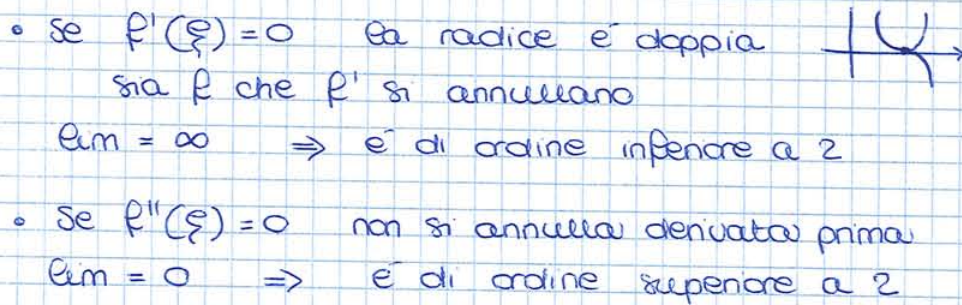 • se f'(ξ) = 0 la radice è doppia
sia f che f' si annullano
lim = ∞ ⇒ è di ordine inferiore a 2
• se f''(ξ) = 0 non si annulla derivata prima
lim = 0 ⇒ è di ordine superiore a 2